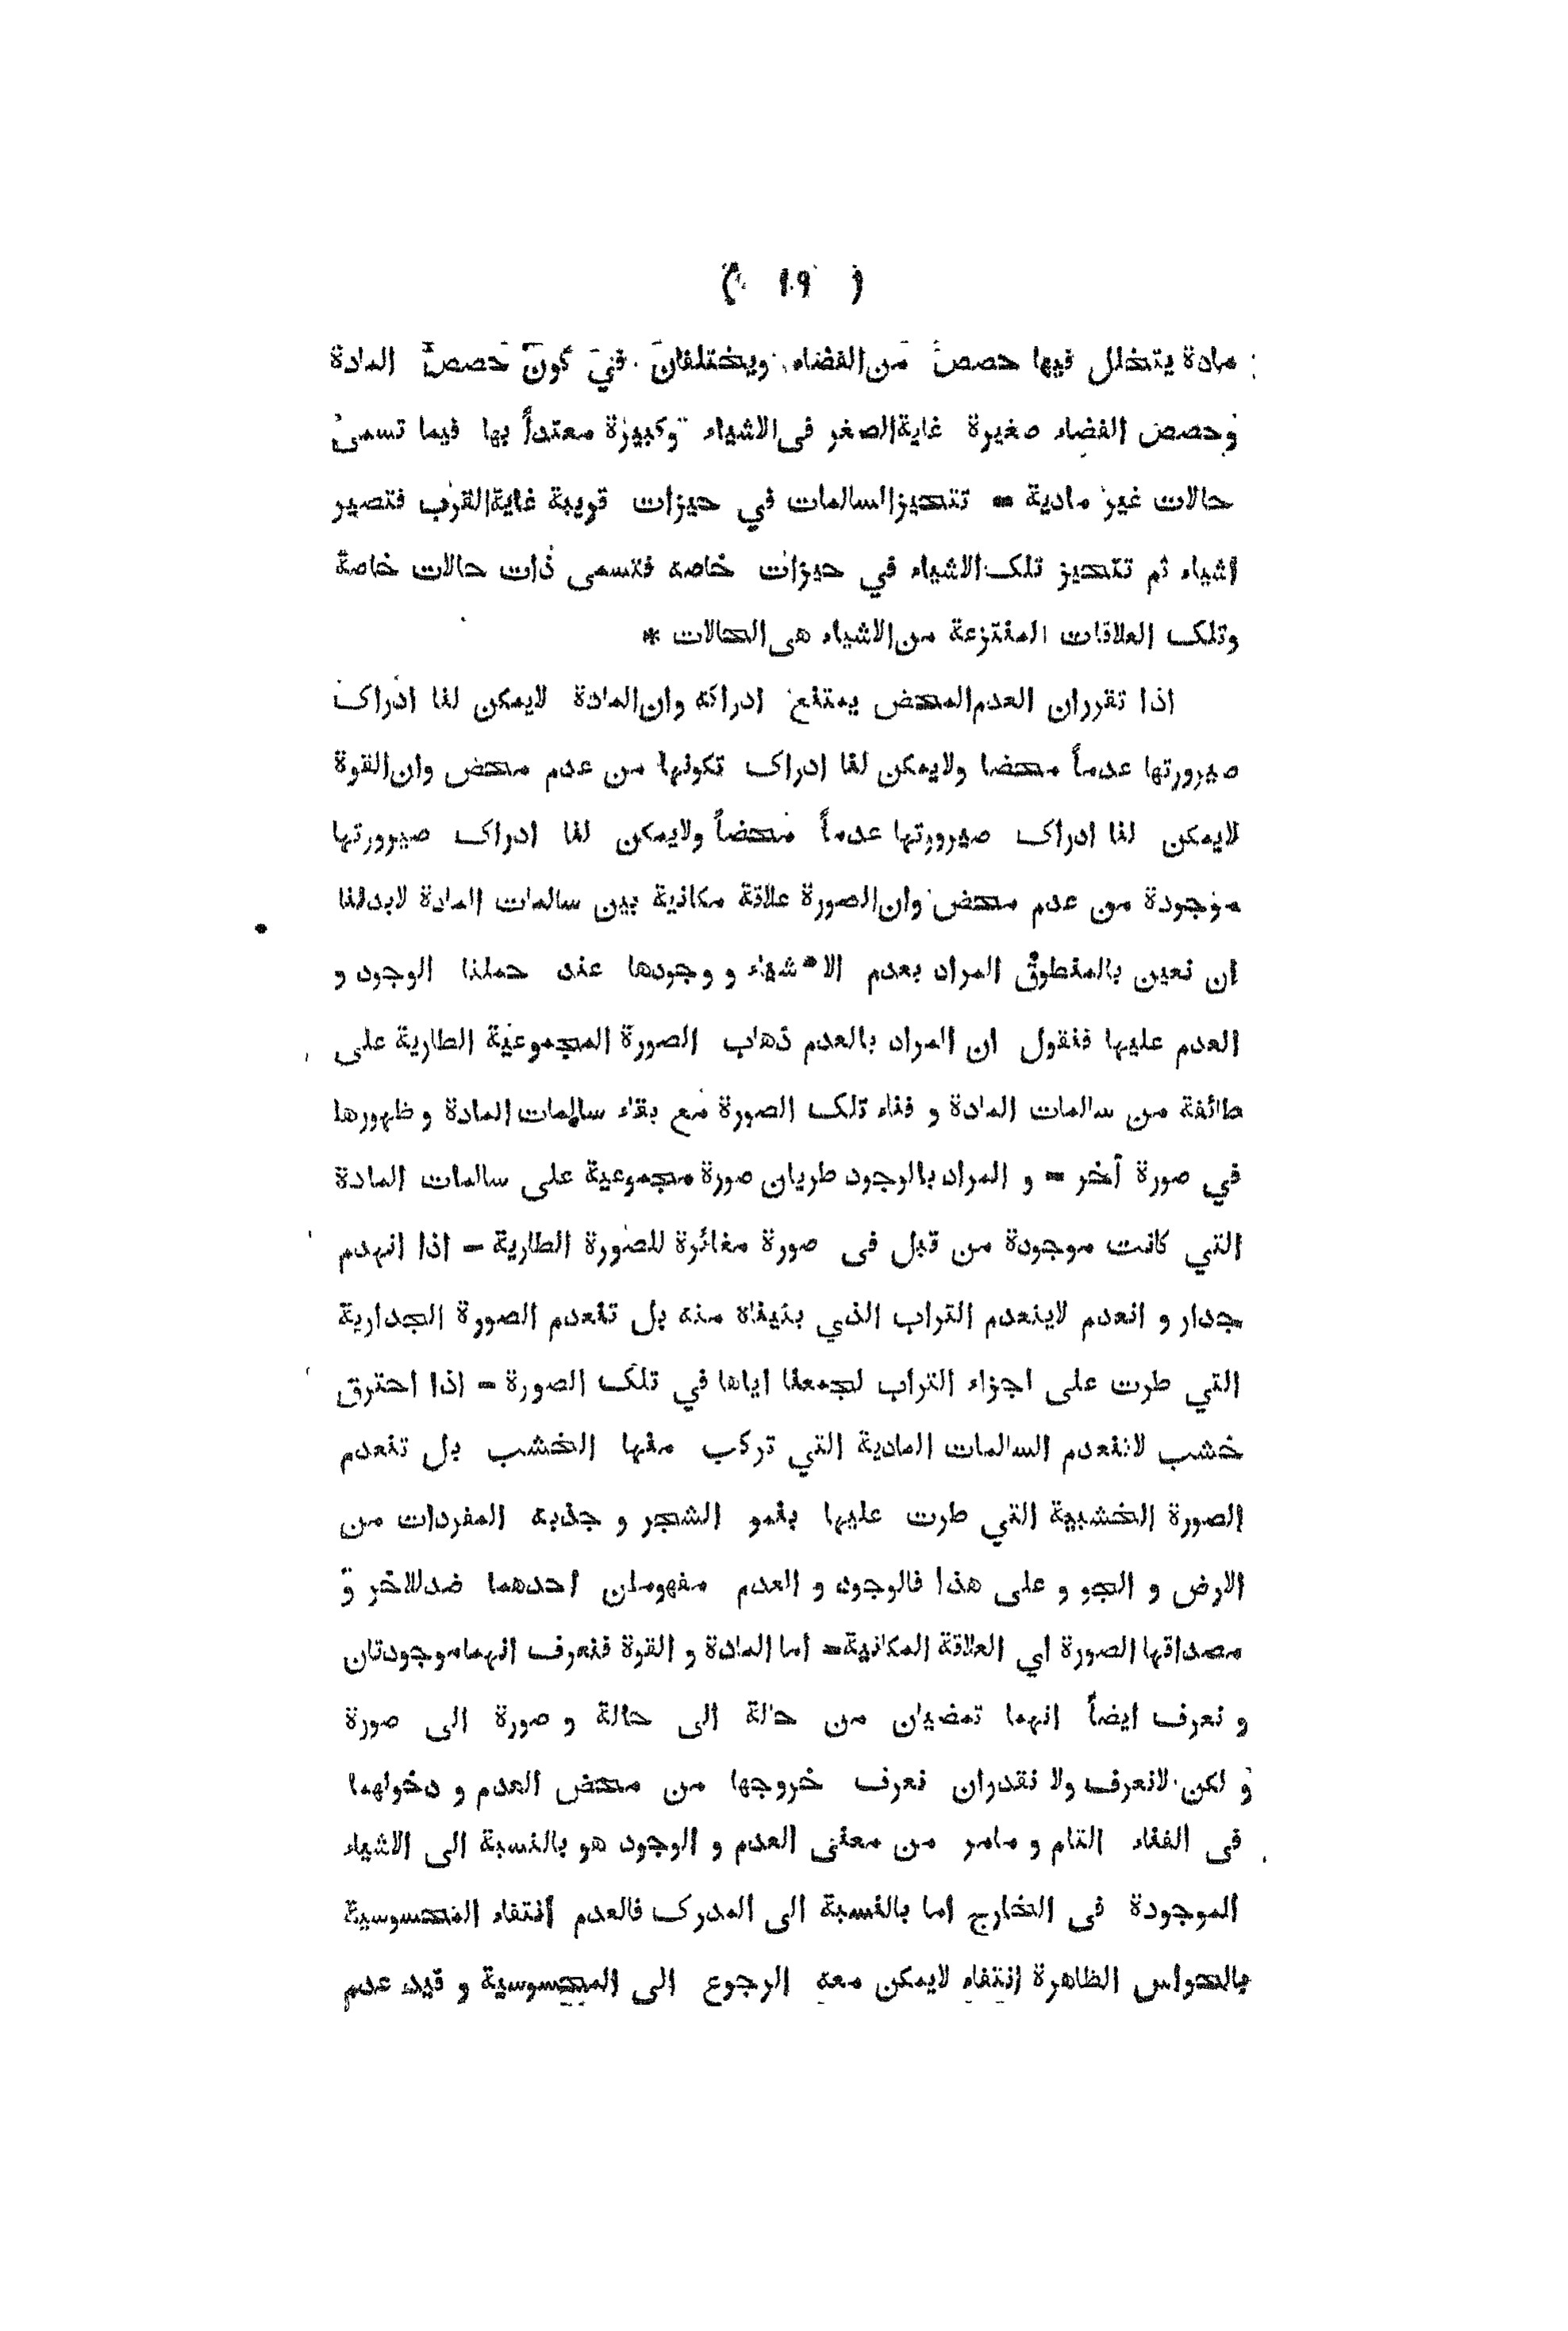 ( ١٠٩ )
مادة يتخلل فيها حصص من الفضاء ويختلفان في كون حصص المادة
وحصص الفضاء صغيرة غاية الصغر فى الاشياء وكبيرة معتداً بها فيما تسمى
حالات غير مادية = تتحيز السالمات في حيزات قريبة غاية القرب فتصير
اشياء ثم تتحيز تلك الاشياء في حيزات خاصه فتسمى ذات حالات خاصة
وتلك العلاقات المنتزعة من الاشياء هى الحالات *
اذا تقرران العدم المحض يمتنع ادراكه وان المادة لايمكن لنا ادراك
صيرورتها عدماً محضا ولايمكن لنا ادراك تكونها من عدم محض وان القوة
لايمكن لنا ادراك صيرورتها عدماً محضاً ولايمكن لنا ادراك صيرورتها
موجودة من عدم محض وان الصورة علاقة مكانية بين سالمات المادة لابدلنا
ان نعين بالمنطوق المراد بعدم الاشياء و وجودها عند حملنا الوجود و
العدم عليها فنقول ان المراد بالعدم ذهاب الصورة المجموعية الطارية على
طائفة من سالمات المادة و فناء تلك الصورة مع بقاء سالمات المادة و ظهورها
في صورة أخر = و المراد بالوجود طريان صورة مجموعية على سالمات المادة
التي كانت موجودة من قبل فى صورة مغائرة للصورة الطارية = اذا انهدم
جدار و انعدم لاينعدم التراب الذي بنيناه منه بل تنعدم الصورة الجدارية
التي طرت على اجزاء التراب لجمعنا اياها في تلك الصورة = اذا احترق
خشب لاتنعدم السالمات المادية التي تركب منها الخشب بل تنعدم
الصورة الخشبية التي طرت عليها بنمو الشجر و جذبه المفردات من
الارض و الجو و على هذا فالوجود و العدم مفهومان احدهما ضدللاخر و
مصداقها الصورة اي العلاقة المكانية = اما المادة و القوة فنعرف انهماموجودتان
و نعرف ايضاً انهما تمضيان من حالة الى حالة و صورة الى صورة
و لكن لانعرف ولا نقدران نعرف خروجها من محض العدم و دخولهما
فى الفناء التام و مامر من معنى العدم و الوجود هو بالنسبة الى الاشياء
الموجودة فى الخارج اما بالنسبة الى المدرك فالعدم انتفاء المحسوسية
بالحواس الظاهرة انتفاء لايمكن معه الرجوع الى المحسوسية و قيد عدم